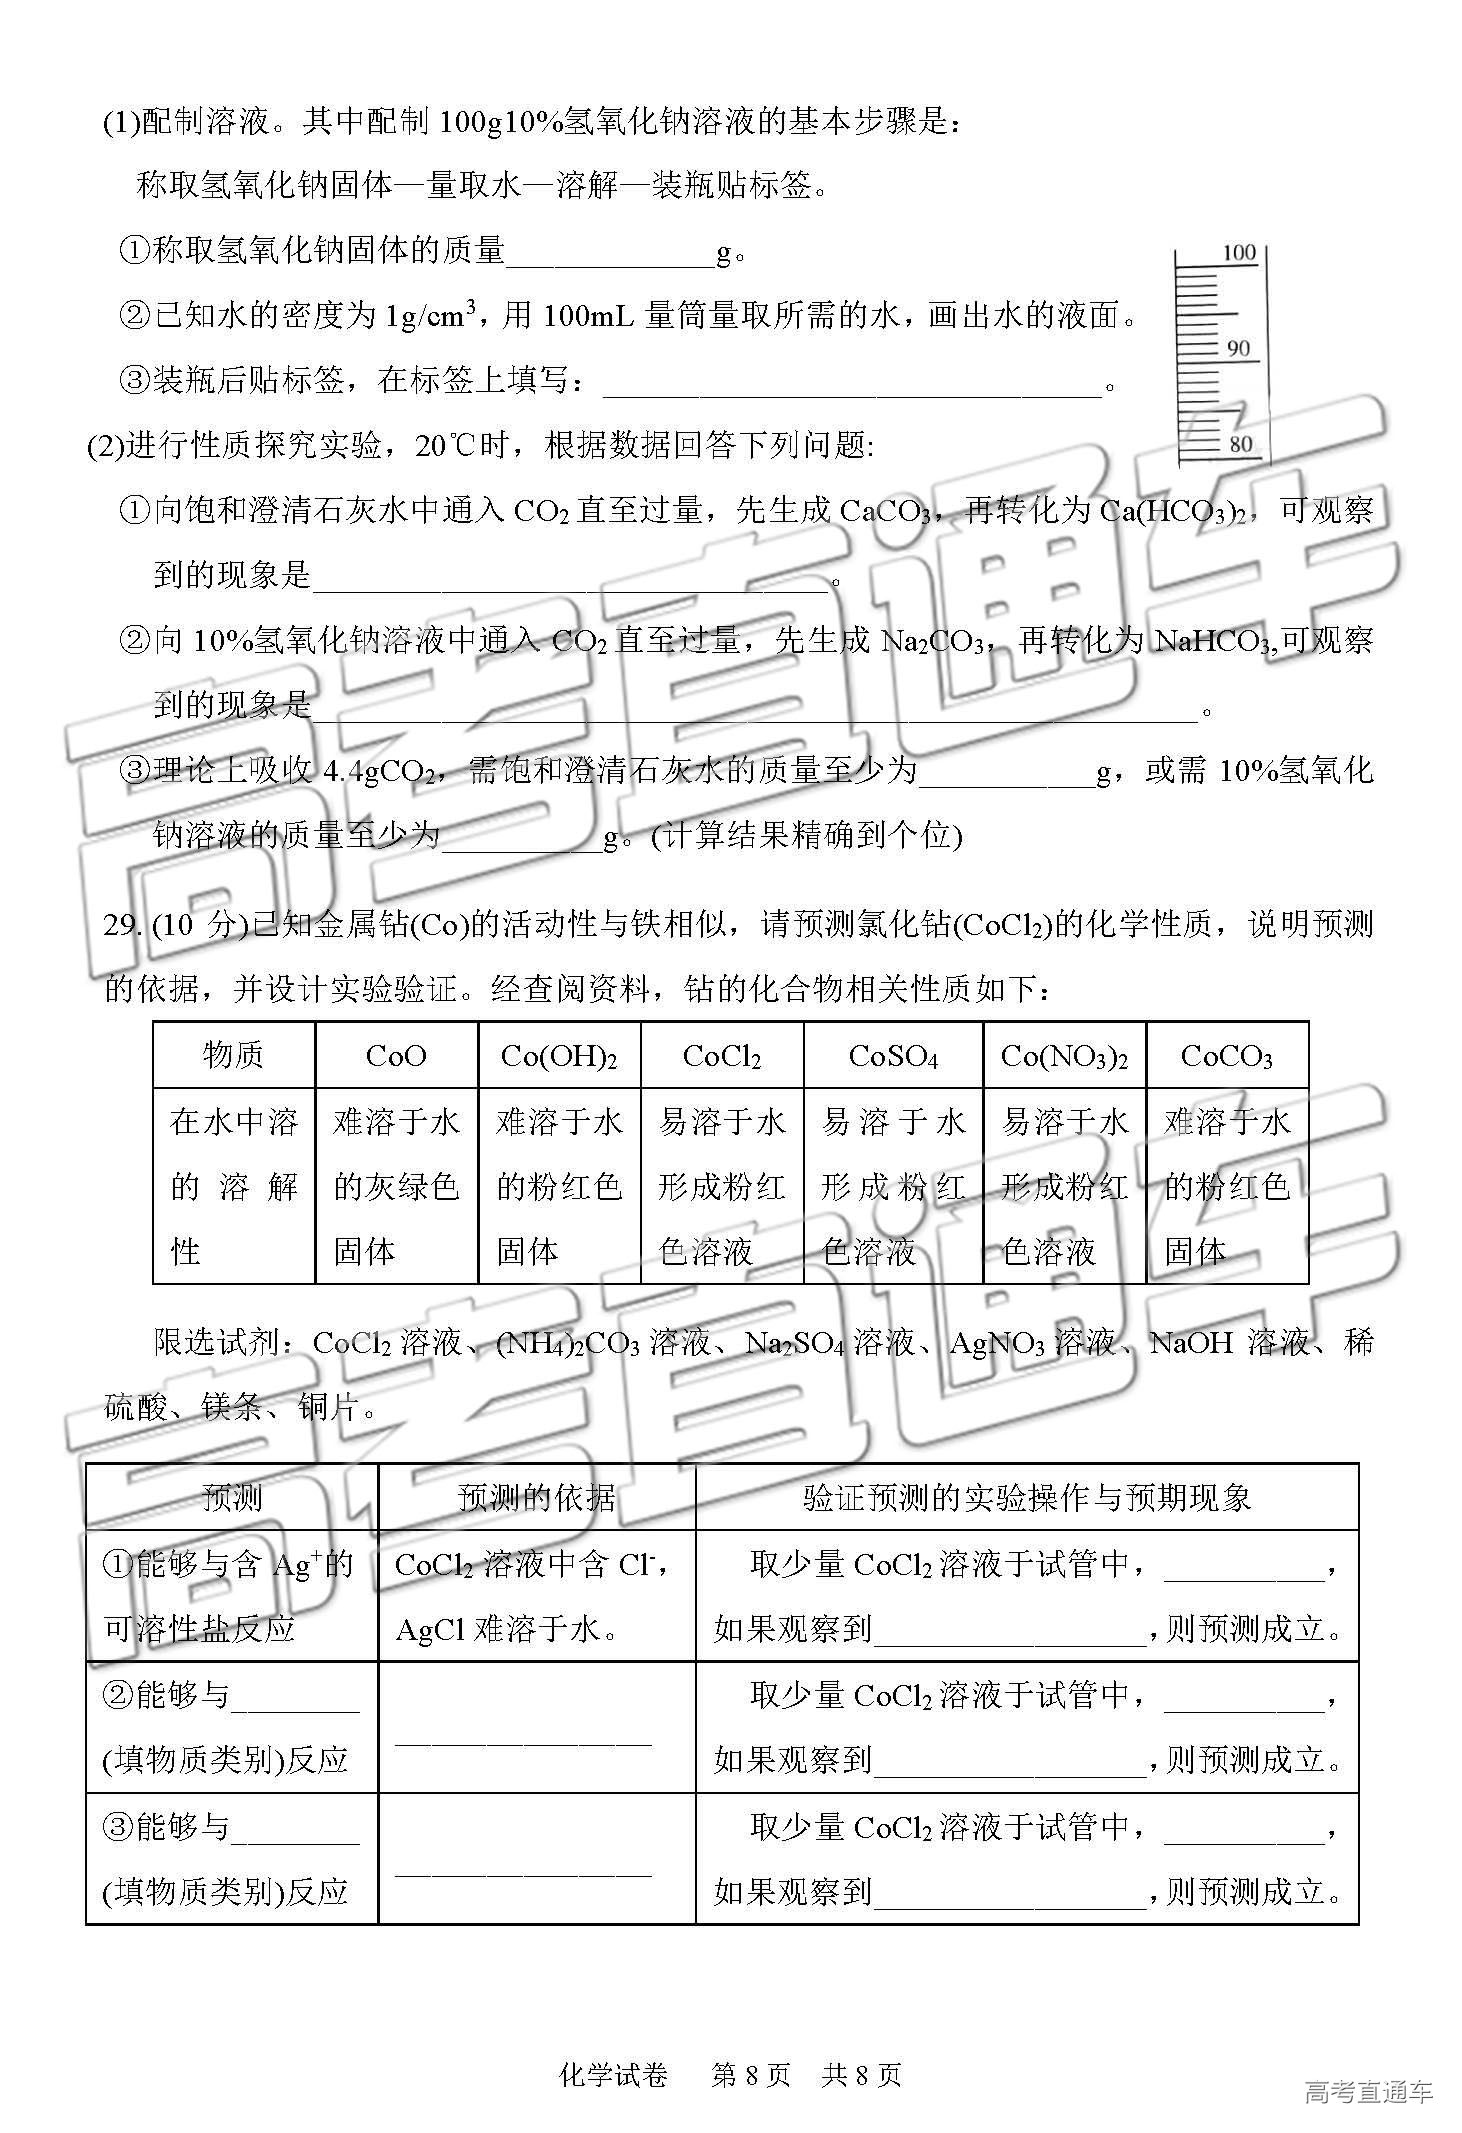 (1)配制溶液。其中配制100g10%氢氧化钠溶液的基本步骤是：
称取氢氧化钠固体—量取水—溶解—装瓶贴标签。
①称取氢氧化钠固体的质量_____________g。
②已知水的密度为1g/cm³，用100mL量筒量取所需的水，画出水的液面。
100
90
80
③装瓶后贴标签，在标签上填写：_______________________________。
(2)进行性质探究实验，20℃时，根据数据回答下列问题:
①向饱和澄清石灰水中通入CO₂直至过量，先生成CaCO₃，再转化为Ca(HCO₃)₂，可观察
到的现象是________________________________。
②向10%氢氧化钠溶液中通入CO₂直至过量，先生成Na₂CO₃，再转化为NaHCO₃,可观察
到的现象是_______________________________________________________。
③理论上吸收4.4gCO₂，需饱和澄清石灰水的质量至少为___________g，或需10%氢氧化
钠溶液的质量至少为__________g。(计算结果精确到个位)
29. (10 分)已知金属钴(Co)的活动性与铁相似，请预测氯化钴(CoCl₂)的化学性质，说明预测
的依据，并设计实验验证。经查阅资料，钴的化合物相关性质如下：
物质 CoO Co(OH)₂ CoCl₂ CoSO₄ Co(NO₃)₂ CoCO₃
在水中溶 难溶于水 难溶于水 易溶于水 易溶于水 易溶于水 难溶于水
的溶解 的灰绿色 的粉红色 形成粉红 形成粉红 形成粉红 的粉红色
性 固体 固体 色溶液 色溶液 色溶液 固体
限选试剂：CoCl₂溶液、(NH₄)₂CO₃溶液、Na₂SO₄溶液、AgNO₃溶液、NaOH 溶液、稀
硫酸、镁条、铜片。
预测 预测的依据 验证预测的实验操作与预期现象
①能够与含Ag⁺的 CoCl₂溶液中含Cl⁻， 取少量CoCl₂溶液于试管中，__________，
可溶性盐反应 AgCl难溶于水。 如果观察到_________________，则预测成立。
②能够与________ ________________ 取少量CoCl₂溶液于试管中，__________，
(填物质类别)反应 如果观察到_________________，则预测成立。
③能够与________ ________________ 取少量CoCl₂溶液于试管中，__________，
(填物质类别)反应 如果观察到_________________，则预测成立。
化学试卷 第8页 共8页
高考直通车
高考直通车
高考直通车